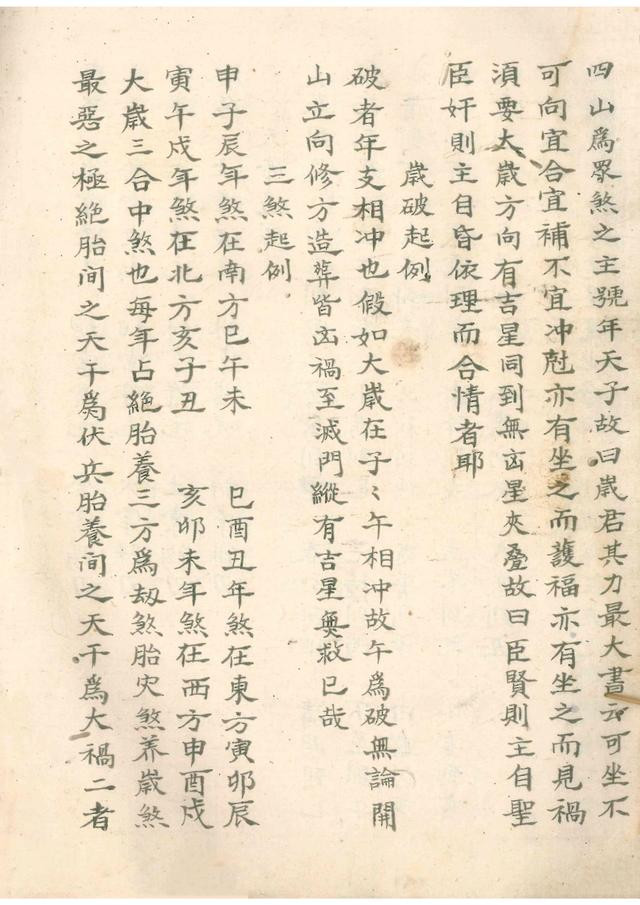 四山爲眾煞之主號年天子故曰歲君其力最大書云可坐不
可向宜合宜補不宜冲尅亦有坐之而護福亦有坐之而見禍
須要大歲方向有吉星同到無凶星夾疊故曰臣賢則主自聖
臣奸則主自昏依理而合情者耶
歲破起例
破者年支相冲也假如大歲在子〻午相冲故午爲破無論開
山立向修方造葬皆凶禍至滅門縱有吉星奠救已哉
三煞起例
申子辰年煞在南方巳午未 巳酉丑年煞在東方寅卯辰
寅午戌年煞在北方亥子丑 亥卯未年煞在西方申酉戌
大歲三合中煞也每年占絕胎養三方爲劫煞胎灾煞养歲煞
最惡之極絕胎间之天干爲伏兵胎養间之天干爲大禍二者